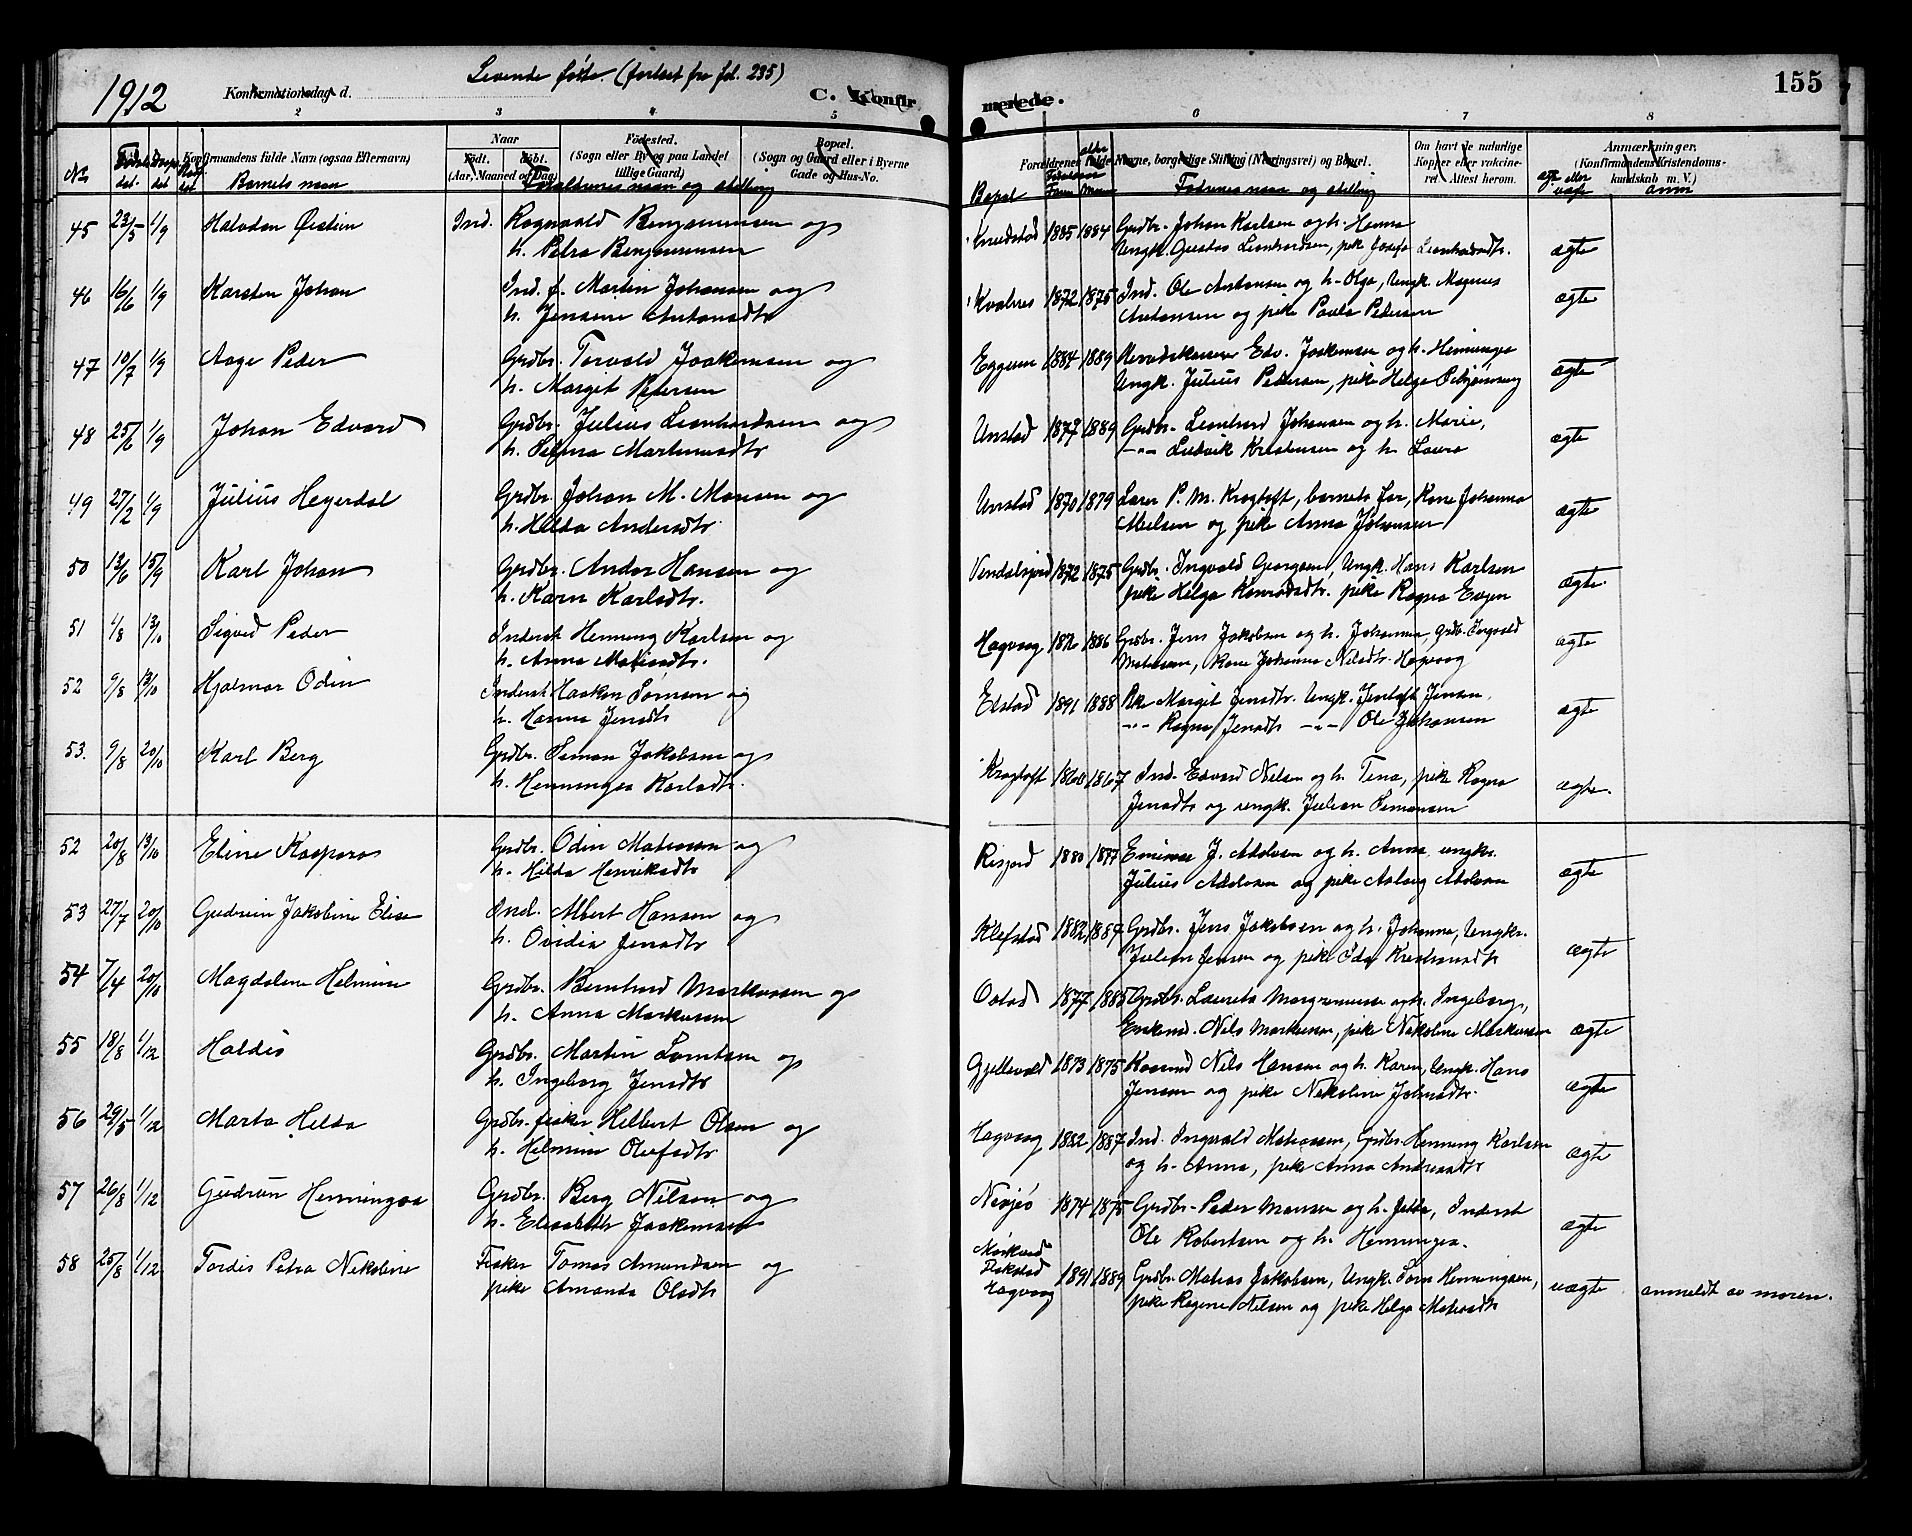 1912
Levende fødte. (fortsat fra fol. 235)
Konfirmationsdag d.
C. Konfir
merede.
155
2 3 4 5 6 7 8
Konfirmandens fulde Navn (ogsaa Efternavn)
Barnets navn
Naar
Født. Døbt.
(Aar, Maaned og Dag)
Fødested.
(Sogn eller By og paa Landet tillige Gaard)
Bopæl.
(Sogn og Gaard eller i Byerne Gade og Hus-No.
Forældrenes navn og stilling
Forældrenes fulde Navne, borgerlige Stilling (Næringsvei) og Bopæl.
Bopæl
Fadernes navn og stilling
Om havt de naturlige Kopper eller vakcineret. Attest herom.
Anmærkninger.
(Konfirmandens Kristendomskundskab m. V.)
ægte eller uægte
anm
45 23/5 1/9 Halvdan Øistein Ind. Ragnvald Benjaminsen og
h. Petra Benjaminsen
Grudstad 1885 1884 Grdbr. Johan Karlsen og h. Hanna
Ungk. Gustav Leonhardsen, pike Josefa Leonhardsdtr. ægte
46 16/6 1/9 Karsten Johan Ind. f. Martin Johansen og
h. Jensine Antonsdtr
Kvalnes 1872 1875 Ind. Ole Antonsen og h. Olga, Ungk. Magnus
Antonsen og pike Paula Pedersen ægte
47 10/7 1/9 Aage Peder Grdbr. Torvald Joakimsen og
h. Margit Petersen
Eggum 1884 1889 Herredskasserer Edv. Joakimsen og h. Henninga
Ungk. Julius Pedersen, pike Helga ægte
48 25/6 1/9 Johan Edvard Grdbr. Julius Leonhardsen og
h. Selma Martinusdtr
Unstad 1877 1889 Grdbr. Leonhard Johansen og h. Marie,
—"— Ludvik Kristensen og h. Laura ægte
49 27/2 1/9 Julius Heyerdal Grdbr. Johan M. Monsen og
h. Hilda Andersdtr.
Unstad 1870 1879 Lærer P. M. Kragtoft, barnets far, Kone Johanna
Nielsen og pike Anna Johansen ægte
50 13/6 15/9 Karl Johan Grdbr. Andor Hansen og
h. Karn Karlsdtr.
Vendalsjord 1872 1875 Grdbr. Ingvald Georgsen, Ungk. Hans Karlsen
pike Helga Konradsdtr. pike Ragna Evjen ægte.
51 4/8 13/10 Sigvid Peder Inderst Henning Karlsen og
h. Anna Matisdtr.
Hagvaag 1886 Grdbr. Jens Jakobsen og h. Johanna, Grdb. Ingvald
Matiasen, Kone Johanna Nilsdtr. Hagvaag ægte
52 9/8 13/10 Hjalmar Odin Inderst Haakon Tomsen og
h. Hanna Jensdtr
Elstad 1891 1888 Pike Margit Jensdtr. Ungk. Jentoft Jensen
—"— Ragna Jensdtr —"— Ole Johansen ægte
53. 9/8 20/10 Karl Berg Grdbr. Simon Jakobsen og
h. Henninga Karlsdtr.
Kragtoft 1868 1867 Ind. Edvard Nilsen og h. Tina, pike Ragna
Jensdtr og ungk. Julian Simonsen ægte.
52 20/8 13/10 Eline Kaspara Grdbr. Odin Matiassen og
h. Hilda Henriksdtr
Risjord 1880 1877 J. Adolvsen og h. Anna ungkr.
Julius Adolvsen og pike Aslaug Adolvsen ægte
53 27/7 20/10 Gudrun Jakobine Elise Ind. Albert Hansen og
h. Ovidia Jensdtr
Klefstad 1882 1887 Grdbr. Jens Jakobsen og h. Johanna, Ungkr.
Julian Jensen og pike Ida Kristiansdtr ægte
54 7/4 20/10 Magdalene Helmine Grdbr. Bernhard Markussen og
h. Anna Markussen
Ostad 1877 1885 Grdbr. Laurits og h. Ingeborg,
Nils Markussen, pike Nikoline Markussen ægte
55 18/8 1/12 Haldis Grdbr. Martin Lorntsen og
h. Ingeborg Jensdtr
Gjellevold 1873 1875 Nils Hansen og h. Karen, Ungk. Hans
Jensen og pike Nikoline Johnsdtr. ægte
56 29/5 1/12 Marta Hilda Grdbr. fisker Hilbert Olsen og
h. Helmine Olufsdtr
Hagvaag 1882 1887 Ind. Ingvald Matiassen, Grdbr. Henning Karlsen
og h. Anna, pike Anna Andreasdtr ægte
57 26/8 1/12 Gudrun Henningsa Grdbr. Berg Nilsen og
h. Elisabeth Joakimsen
1874 1875 Grdbr. Peder Monsen og h. Jetta, Inderst
Ole Robertsen og h. Henninga. ægte
58 25/8 1/12 Tordis Petra Nikoline Fisker Tomas Amundsen og
pike Amanda Olsdtr
Hagvaag 1891 1889 Grdbr. Matias Jakobsen, Ungk. Tom Henningsen,
pike Ragna Nilsen og pike Helga Matiasdtr uægte anmeldt av moren.